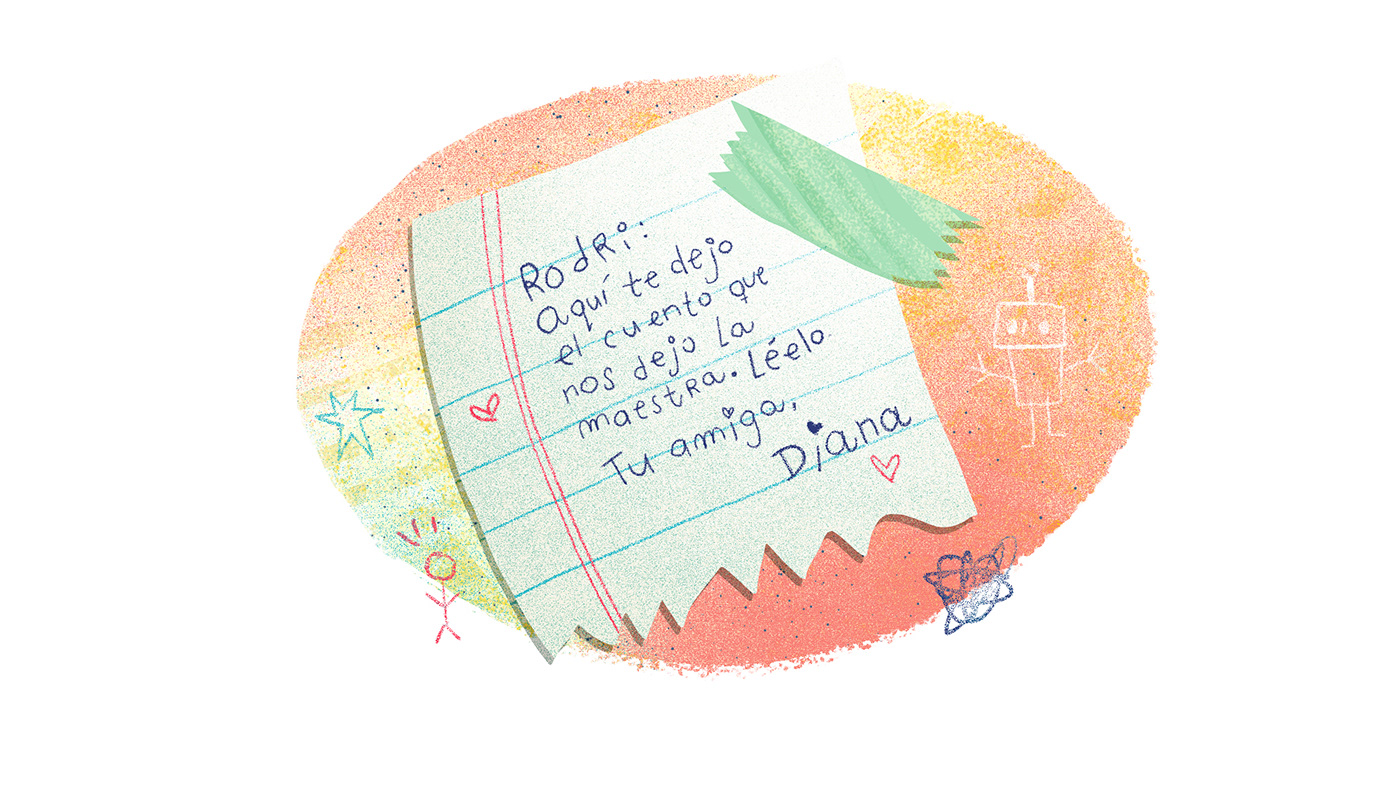 Rodri:
Aquí te dejo
el cuento que
nos dejo la
maestra. Léelo.
Tu amiga,
Diana